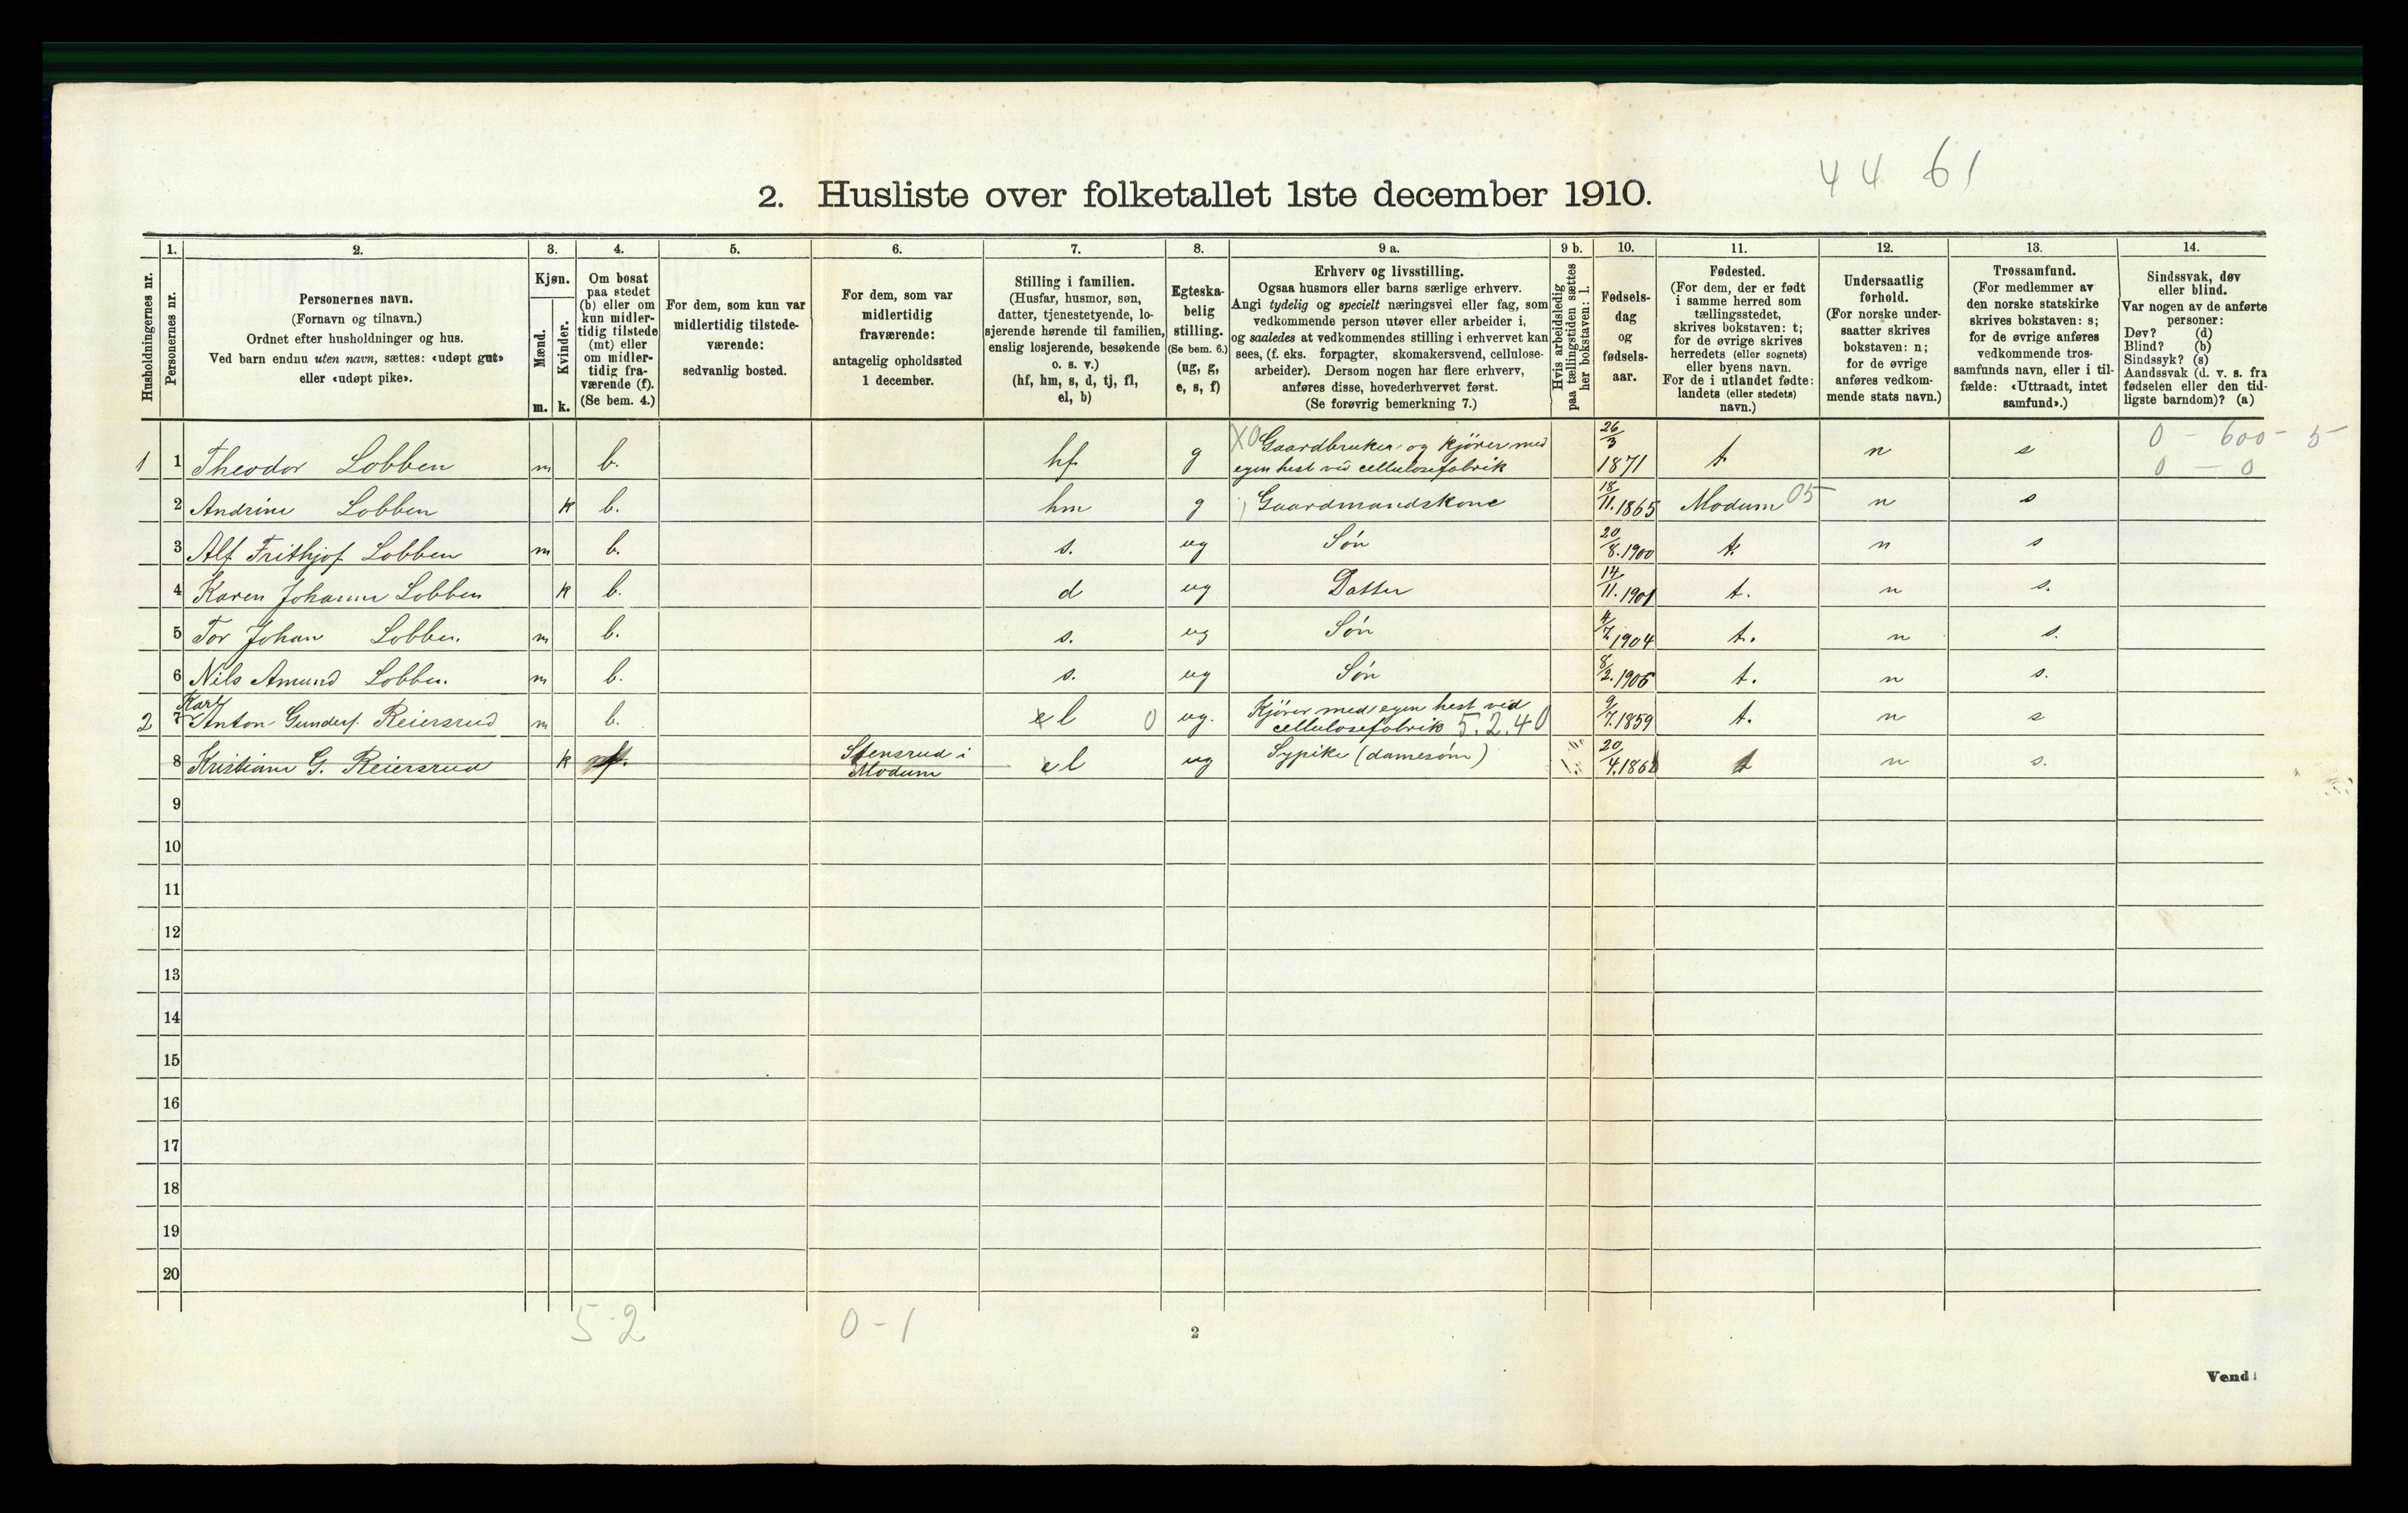 44 61
2. Husliste over folketallet 1ste december 1910.
Husholdningernes nr.
1.
Personernes nr.
2.
Personernes navn.
(Fornavn og tilnavn.)
Ordnet efter husholdninger og hus.
Ved barn endnu uten navn, sættes: «udøpt gut»
eller «udøpt pike».
3.
Kjøn.
Mænd.
Kvinder.
m. k.
4.
Om bosat
paa stedet
(b) eller om
kun midler-
tidig tilstede
(mt) eller
om midler-
tidig fra-
værende (f).
(Se bem. 4.)
5.
For dem, som kun var
midlertidig tilstede-
værende:
sedvanlig bosted.
6.
For dem, som var
midlertidig
fraværende:
antagelig opholdssted
1 december.
7.
Stilling i familien.
(Husfar, husmor, søn,
datter, tjenestetyende, lo-
sjerende hørende til familien,
enslig losjerende, besøkende
o. s. v.)
(hf, hm, s, d, tj, fl,
el, b)
8.
Egteska-
belig
stilling.
(Se bem. 6.)
(ug, g,
e, s, f)
9 a.
Erhverv og livsstilling.
Ogsaa husmors eller barns særlige erhverv.
Angi tydelig og specielt næringsvei eller fag, som
vedkommende person utøver eller arbeider i,
og saaledes at vedkommendes stilling i erhvervet kan
sees, (f. eks. forpagter, skomakersvend, cellulose-
arbeider). Dersom nogen har flere erhverv,
anføres disse, hovederhvervet først.
(Se forøvrig bemerkning 7.)
9 b.
Hvis arbeidsledig
paa tællingstiden sættes
her bokstaven: l.
10.
Fødsels-
dag
og
fødsels-
aar.
11.
Fødested.
(For dem, der er født
i samme herred som
tællingsstedet,
skrives bokstaven: t;
for de øvrige skrives
herredets (eller sognets)
eller byens navn.
For de i utlandet fødte:
landets (eller stedets)
navn.)
12.
Undersaatlig
forhold.
(For norske under-
saatter skrives
bokstaven: n;
for de øvrige
anføres vedkom-
mende stats navn.)
13.
Trossamfund.
(For medlemmer av
den norske statskirke
skrives bokstaven: s;
for de øvrige anføres
vedkommende tros-
samfunds navn, eller i til-
fælde: «Uttraadt, intet
samfund».)
14.
Sindssvak, døv
eller blind.
Var nogen av de anførte
personer:
Døv? (d)
Blind? (b)
Sindssyk? (s)
Aandssvak (d. v. s. fra
fødselen eller den tid-
ligste barndom)? (a)
1 1 Theodor Lobben m b. hf g X0 Gaardbruker og kjører med egen hest ved cellulosefabrik 26/3 1871 t n s 0 - 600 - 5
0 - 0
2 Andrine Lobben k b. hm g Gaardmandskone 18/11.1865 Modum 05 n s
3 Alf Frithjof Lobben m b. s. ug Søn 20/8.1900 t. n s
4 Karen Johanne Lobben k b. d ug Datter 14/11.1901 t. n s.
5 Tor Johan Lobben. m b. s. ug Søn 4/7 1904 t. n s.
6 Nils Amund Lobben. m b. s. ug Søn 8/2.1906 t. n s.
Karl
2 7 Anton Gunders. Reiersrud m b. el 0 ug. Kjører med egen hest ved cellulosefabrik 5.2.40 9/7.1859 t. n s
8 Kristiane G. Reiersrud k f. Stensrud i Modum el ug Sypike (damesøm) 20/4.1862 t n s.
9
10
11
12
13
14
15
16
17
18
19
20
5-2
0-1
2
Vend!